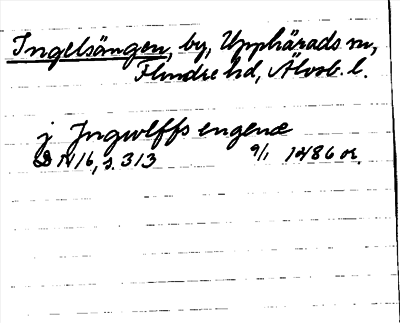 Ingelsängen, by, Upphärads sn,
Flundre hd, Älvsb. l.
j Jngwlffs engenæ
N16, s. 313 9/1 1486 or.